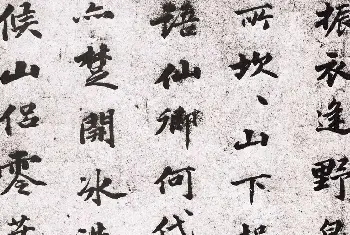 振衣逢野
所坎、山下
語仙卿何代
楚開冰
候山侶零